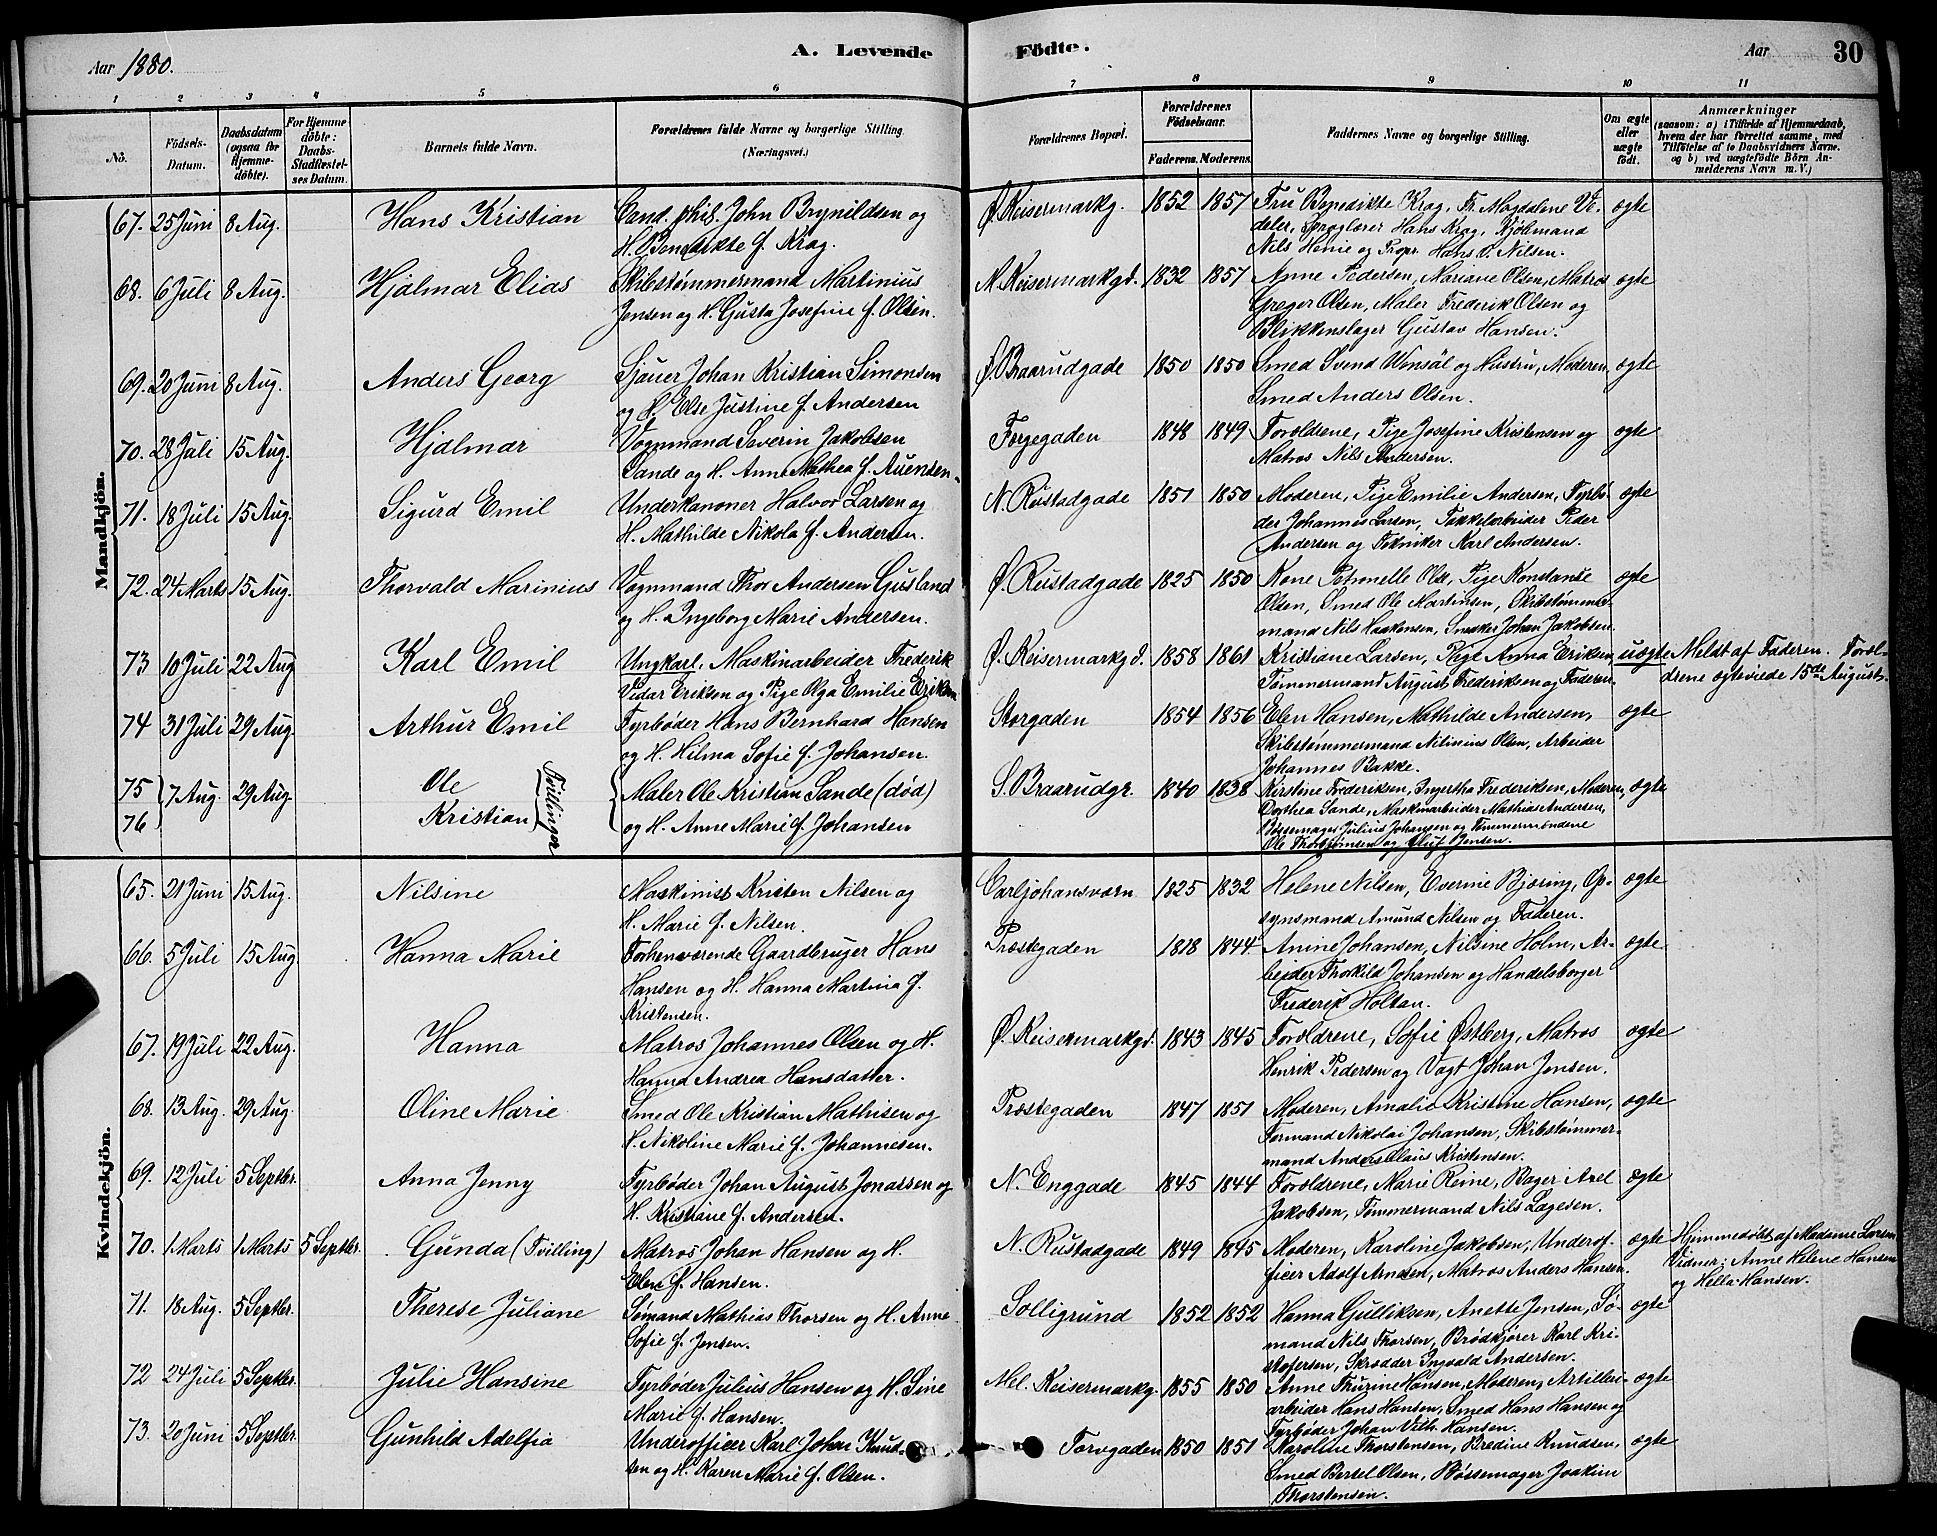 Aar 1880.
A. Levende
Födte.
Aar
30
1 2 3 4 5 6 7 8 9 10 11
No.
Födsels-Datum.
Daabsdatum (ogsaa for Hjemme-döbte).
For Hjemme-döbte: Daabs-Stadfæstel-ses Datum.
Barnets fulde Navn.
Forældrenes fulde Navne og borgerlige Stilling. (Næringsvei.)
Forældrenes Bopæl.
Forældrenes Födselsaar.
Faderens. Moderens.
Faddernes Navne og borgerlige Stilling.
Om ægte eller uægte födt.
Anmærkninger
(saasom: a) i Tilfælde af Hjemmedaab, hvem der har forrettet samme, med Tilföielse af to Daabsvidners Navne. og b) ved uægtefödte Börn An-melderens Navn m. V.)
Mandkjön.
67. 25 Juni 8 Aug. Hans Kristian Cand. phil. John Brynildsen og Ø. Keisermarkg. 1852 1857 Fru Benedikte Krog, Fr. Magdalene Ve- ægte
H. Benedikte f. Krog. deler, Sproglærer Hans Krog, Kjöbmand
Nils Henie og Propr. Hans D. Nilsen.
68. 6 Juli 8 Aug. Hjalmar Elias Skibstømmermand Martinius N. Keisermarkgd. 1832 1857 Anne Pedersen, Mariane Olsen, Matros ægte
Jensen og H. Gusta Josefine f. Olsen. Greger Olsen, Maler Frederik Olsen og
Blikkenslager Gustav Hansen.
69. 20 Juni 8 Aug. Anders Georg Sjauer Johan Kristian Simonsen Ø. Braarudgade 1850 1850 Smed Svend Wensöl og Hustru, Moderen, ægte
og H. Else Justine f. Andersen Smed Anders Olsen.
70. 28 Juli 15 Aug. Hjalmar Vognmand Severin Jakobsen Færgegaden 1848 1849 Forældrene, Pige Josefine Kristensen og ægte
Sande og H. Anne Mathea f. Auensen. Matros Nils Andersen.
71. 18 Juli 15 Aug. Sigurd Emil Underkanoner Halvor Larsen og N. Rustadgade 1851 1850 Moderen, Pige Emilie Andersen, Fyrbö- ægte
H. Mathilde Nikola f. Andersen. der Johannes Larsen, Takkelarbeider Peder
Andersen og Tekniker Karl Andersen.
72. 24 Marts 15 Aug. Thorvald Marinius Vognmand Thor Andersen Gusland Ø. Rustadgade 1825 1850 Kone Petronelle Olse, Pige Konstanse ægte
og H. Ingeborg Marie Andersen. Olsen, Smed Ole Martinsen, Skibstømmer-
mand Nils Haakensen, Snekker Johan Jakobsen.
73 10 Juli 22 Aug Karl Emil Ungkarl, Maskinarbeider Frederik Ø. Keisermarkgd. 1858 1861 Kristiane Larsen, Pige Anna Eriksen, uægte Meldt af Faderen. Foræl-
Vidar Eriksen og Pige Olga Emilie Eriksen Tømmermand August Frederiksen og Faderen. drene ægteviede 15de August.
74 31 Juli 29 Aug Arthur Emil Fyrbøder Hans Bernhard Hansen Storgaden 1854 1856 Elen Hansen, Mathilde Andersen, ægte
og H. Hilma Sofie f. Johansen. Skibstømmermand Nilinius Olsen, Arbeider
Johannes Bakke.
75 7 Aug. 29 Aug. Ole Tvillinger Maler Ole Kristian Sande (död) S. Braarudgr. 1840 1838 Kirstine Frederiksen, Ingertha Frederiksen, Moderen, ægte
76 Kristian og H. Anne Marie f. Johansen Dorthea Sande, Maskinarbeider Mathias Andersen,
Bøssemager Julius Johansen og Tømmermændene
Ole Thorstensen og Oluf Jensen.
Kvindekjön.
65. 21 Juni 15 Aug. Nilsine Maskinist Kristen Nilsen og Carljohansværn 1825 1832 Helene Nilsen, Everine Bjæring, Op- ægte
H. Marie f. Nilsen. synsmand Amund Nilsen og Faderen.
66. 5 Juli 15 Aug Hanna Marie Forhenværende Gaardbruger Hans Præstegaden 1818 1844 Anine Johansen, Nilsine Holm, Ar- ægte
Hansen og H. Hanna Martina f. beider Thorkild Johansen og Handelsborger
Kristensen. Frederik Holtan.
67. 19 Juli 22 Aug. Hanna Matros Johannes Olsen og H. Ø. Keisermarkgd. 1843 1845 Forældrene, Sofie Østberg, Matros ægte
Hanna Andrea Hansdatter. Henrik Pedersen og Vagt Johan Jensen.
68. 13 Aug. 29 Aug. Oline Marie Smed Ole Kristian Mathisen og Præstegaden 1847 1851 Moderen, Amalie Kristine Hansen, ægte
H. Nikoline Marie f. Johannesen. Formand Nikolai Johansen, Skibstømmer-
mand Anders Claus Kristensen.
69. 12 Juli 5 Septbr. Anna Jenny Fyrbøder Johan August Jonassen og N. Enggade 1845 1844 Forældrene, Marie Reine, Bager Axel ægte
H. Kristiane f. Andersen. Jakobsen, Tømmermand Nils Lagesen.
70. 1 Marts 1 Marts 5 Septbr. Gunda (Tvilling) Matros Johan Hansen og H. N. Rustadgade 1849 1845 Moderen, Karoline Jakobsen, Underof- ægte Hjemmedøbt af Madame Larsen
Elen f. Hansen. ficer Adolf Arnesen, Matros Anders Hansen. Vidner: Anne Helene Hansen
og Hella Hansen.
71. 18 Aug. 5 Septbr. Therese Juliane Sømand Mathias Thorsen og H. Anne Solligrund 1852 1852 Hanna Gulliksen, Anette Jensen, Sø- ægte
Sofie f. Jensen. mand Nils Thorsen, Brødkjører Karl Kri-
stofersen, Skrædder Ingvald Andersen.
72 24 Juli 5 Septbr. Julie Hansine Fyrbøder Julius Hansen og H. Sine Mel. Keisermarkg. 1855 1850 Anne Thurine Hansen, Moderen, Artilleri- ægte
Marie f. Hansen. arbeider Hans Hansen, Smed Hans Hansen og
Fyrbøder Johan Vilh. Hansen.
73. 20 Juni 5 Septbr. Gunhild Adelfia Underofficer Karl Johan Knud- Torvgaden 1850 1851 Karoline Thorstensen, Bredine Knudsen, ægte
sen og H. Karen Marie f. Olsen. Smed Bertel Olsen, Bøssemager Joakim
Thorstensen.